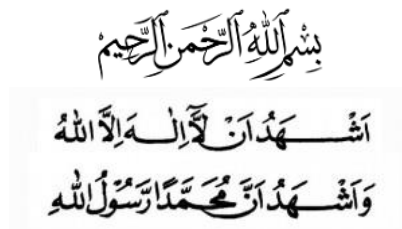 بِسْمِ اللهِ الرَّحْمَنِ الرَّحِيمِ
اَشْهَدُ اَنْ لَّآ اِلٰهَ اِلَّا اللهُ
وَ اَشْهَدُ اَنَّ مُحَمَّدًا رَّسُوْلُ اللهِ